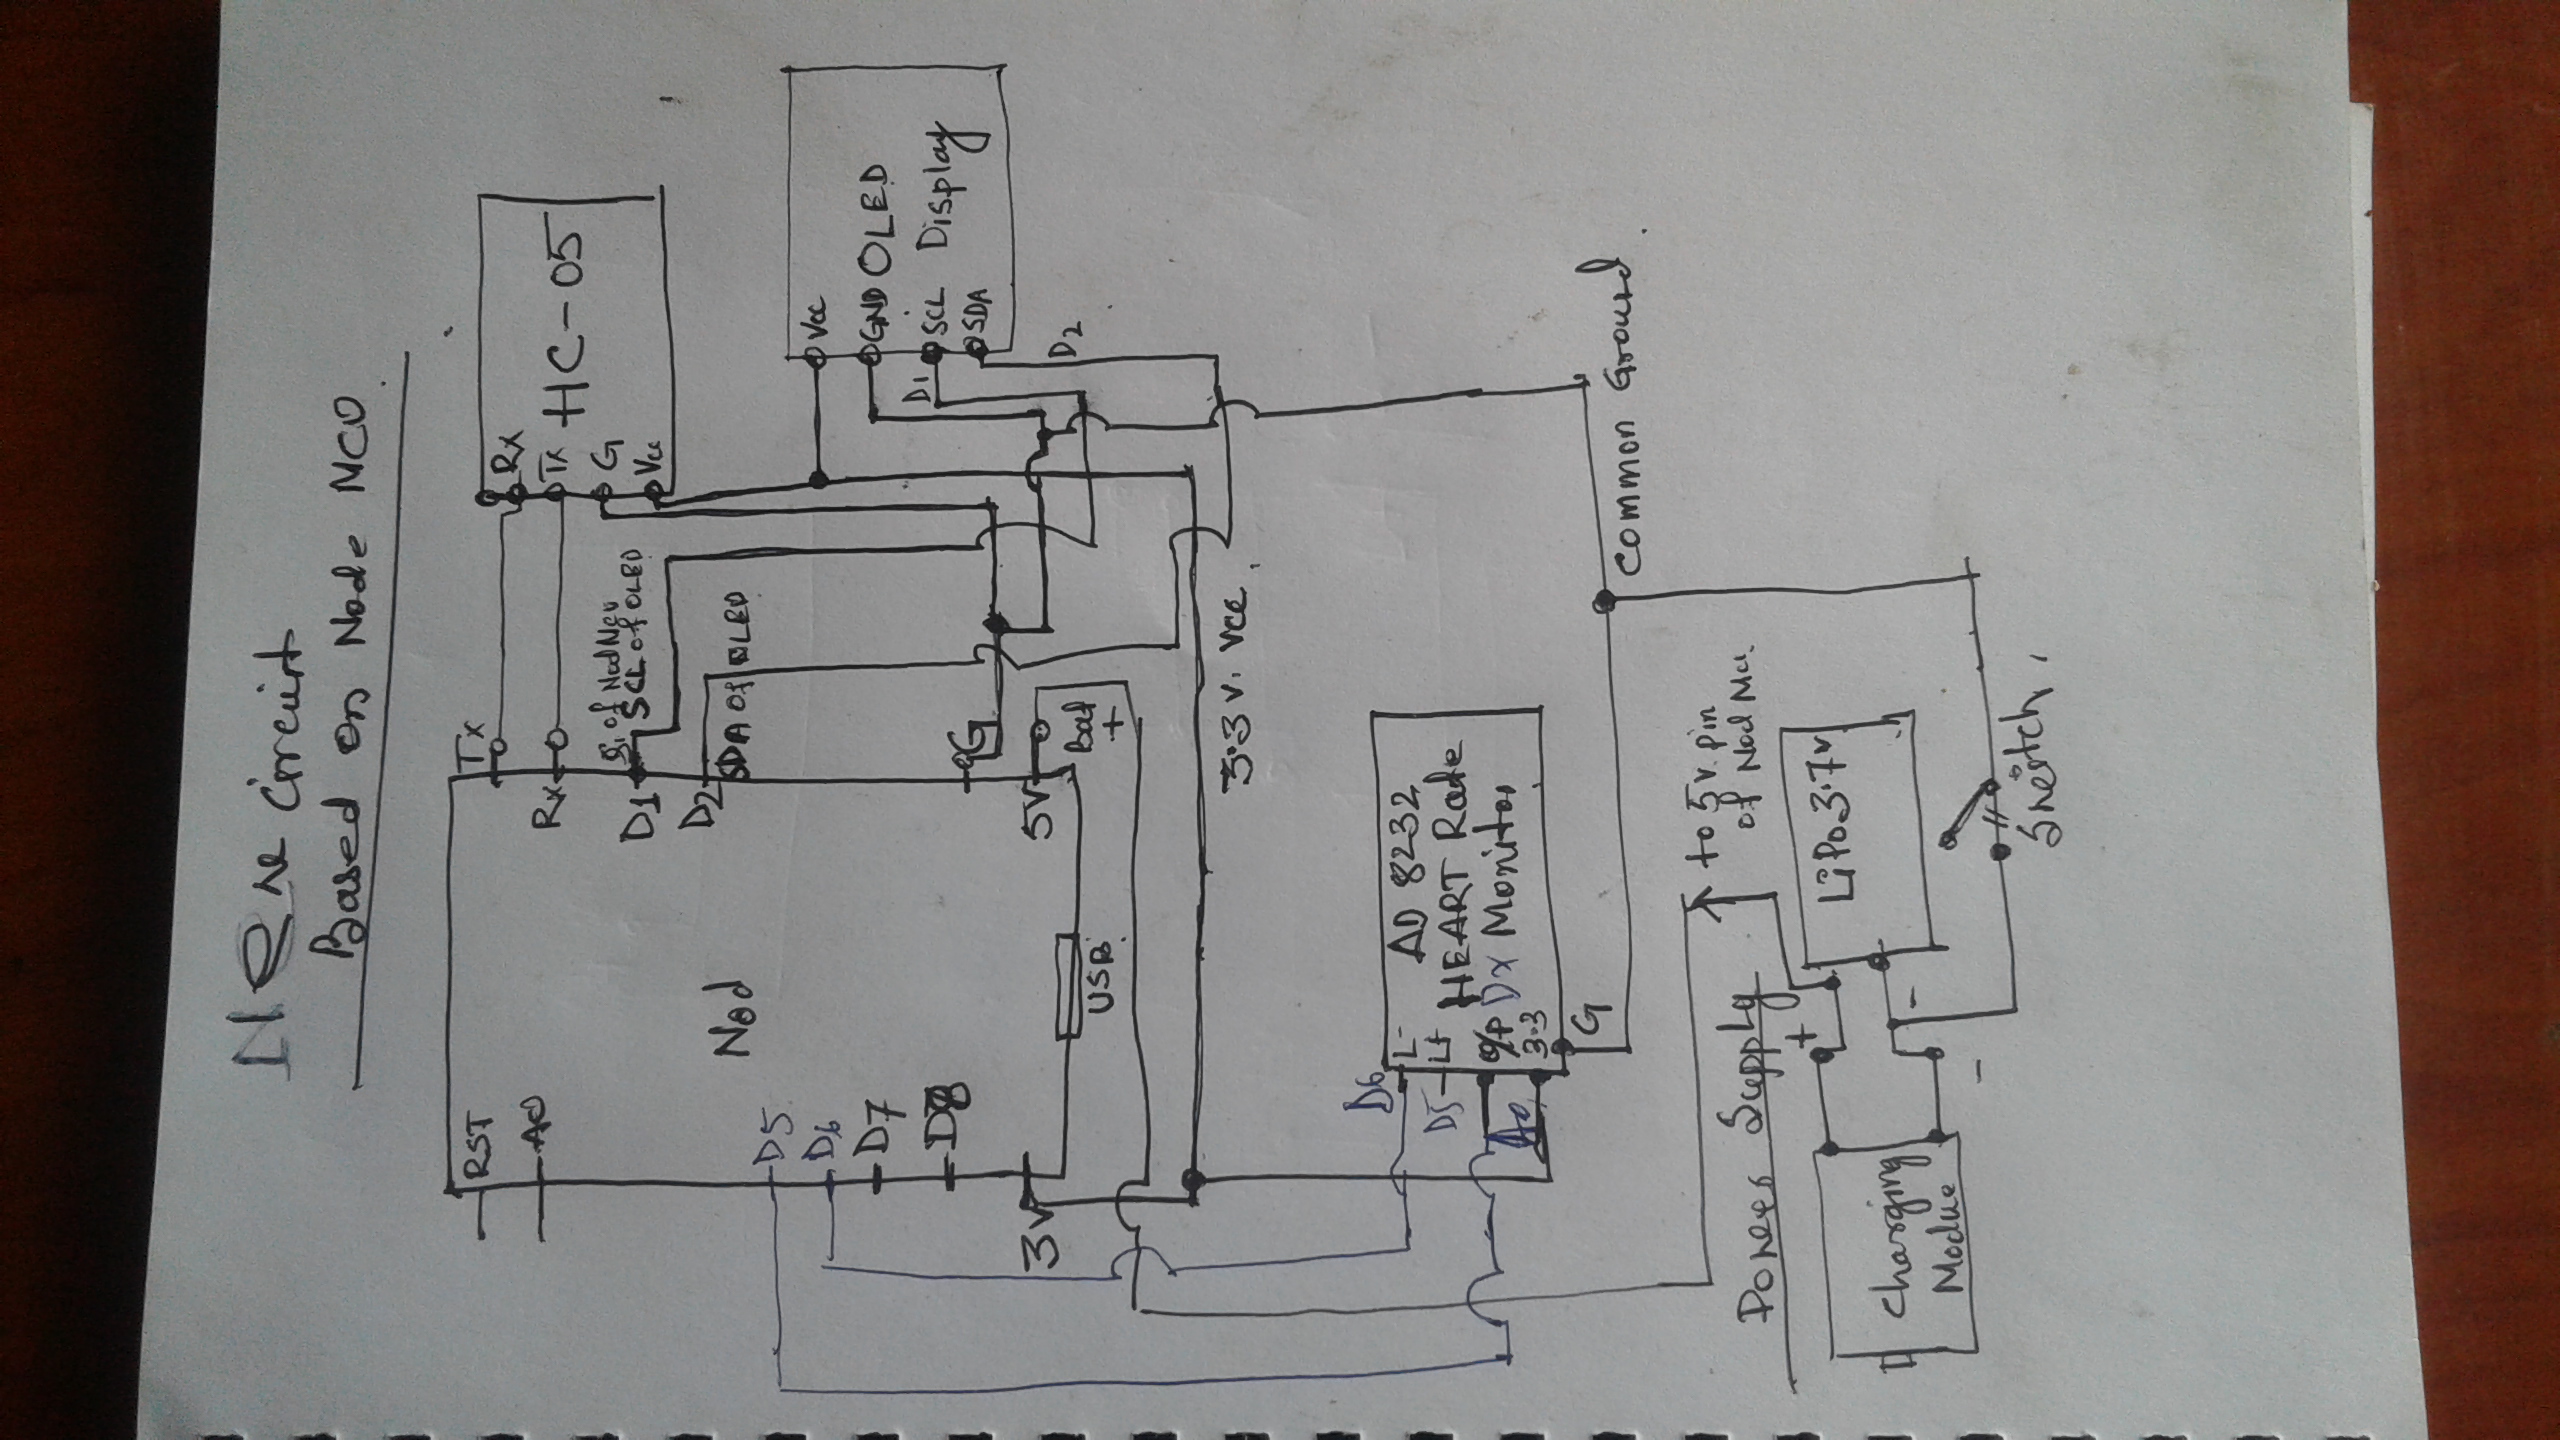 Circuit
Based on Node MCU
HC-05
Rx
Tx
G
Vcc
OLED
Display
Vcc
GND
SCL
SDA
D1
D2
Tx
Rx
D1
SCL of OLED
D2
SDA of OLED
G
5V
Bat
+
Nod
USB
RST
A0
D5
D6
D7
D8
3V
3.3 V. Vcc.
Common Ground
AD 8232
HEART Rate
Monitor
L-
L+
O/P
3.3
G
D6
D5
A0
to 5V. Pin
of Nod Mcu.
Power Supply
LiPo 3.7v
+
-
-
Switch.
Charging
Module